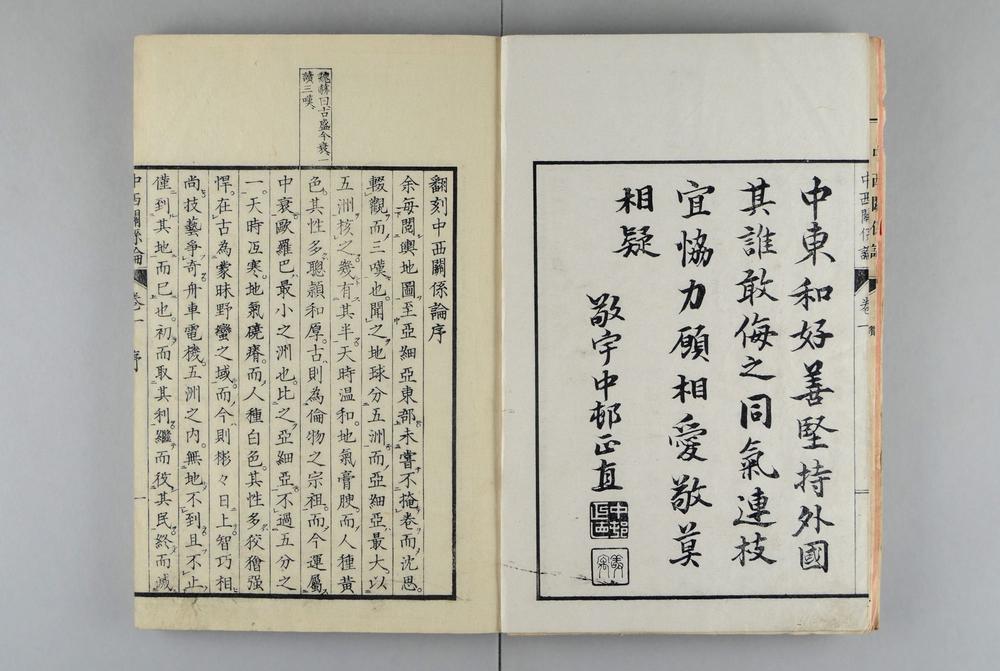 中東和好善堅持外國
其誰敢侮之同氣連枝
宜恊力願相愛敬莫
相疑
敬宇中邨正直
中邨正直
中西關係論
卷一
魏蘇曰古盛今衰一
讀三嘆
翻刻中西關係論序
余每閲輿地圖至亞細亞東部未嘗不掩卷而沈思
輟觀而三嘆也聞之地球分五洲而亞細亞最大以
五洲核之幾有其半天時温和地氣膏腴而人種黃
色其性多聰穎和厚古則為倫物之宗祖而今運屬
中衰歐羅巴最小之洲也比之亞細亞不過五分之
一天時冱寒地氣磽瘠而人種白色其性多狡獪强
悍在古為蒙昧野蠻之域而今則彬々日上智巧相
尚技藝爭奇舟車電機五洲之內無地不到且不止
僅到其地而已也初而取其利繼而役其民終而滅
中西關係論 卷一 序 一